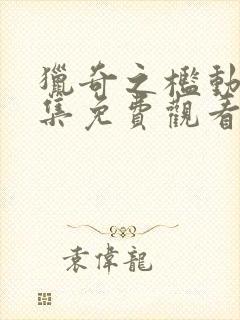 獵奇之檻動
集免費觀看
袁偉龍